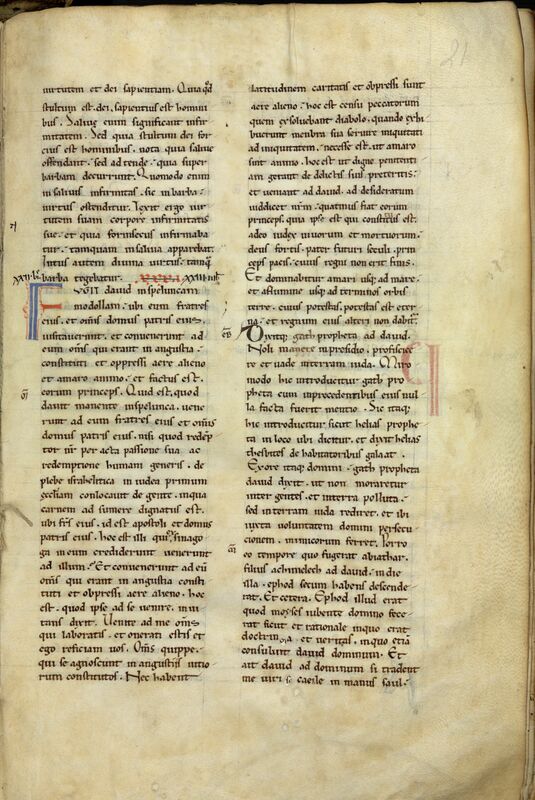 21
uirtutem et dei sapientiam. Quia qd
stultum est dei, sapientius est homini
bus. Saliue enim significant infir
mitatem. Sed quia stultum dei for
cius est hominibus, nota quia saliue
offendant. sed adtende. quia super
barbam decurrunt. Quomodo enim
in saliuis infirmitas. sic in barba
uirtus ostenditur. Texit ergo uir
tutem suam corpore infirmitatis
sue. et quia forinsecus infirmaba
tur. tamquam in saliua apparebat.
Intus autem diuina uirtus. tamq
barba tegebatur.
UGIT dauid inspeluncam
modollam. ubi cum fratres
eius. et oms domus patris eius
uisitauerunt. et conuenerunt ad
eum oms qui erant in angustia.
constituti et oppressi aere alieno
et amaro animo. et factus est
eorum princeps. Quid est, quod
dauit monente inspelunca, uene
runt ad eum fratres eius et oms
domus patris eius. nisi quod redep
tor nr per acta passione sua ac
redemptione humani generis. de
plebe israhelitica in iudea primum
eccliam conlocauit de gente. inqua
carnem ad sumere dignatus est.
ubi frs eius. id est apostoli et domus
patris eius. hoc est illi qui sinago
ga in eum crediderunt uenerunt
ad illum. Et conuenerunt ad eu
oms qui erant in angustia consti
tuti et obpressi aere alieno. hoc
est. quod ipse ad se uenire. inui
tans dixit. Uenite ad me oms
qui laboratis. et onerati estis et
ego reficiam uos. Oms quippe.
qui se agnoscunt in angustiis uitio
rum constitutos. Nec habent
latitudinem caritatis et obpressi sunt
aere alieno. hoc est censu peccatorum
quem exsoluebant diabolo. quando exhi
buerunt menbra sua seruire iniquitati
ad iniquitatem. necesse est. ut amaro
sint animo. hoc est ut digne penitenti
am gerant de delictis suis preteritis.
et ueniant ad dauid. ad desideratum
uidelicet nrm. quatinus fiat eorum
princeps. quia ipse est qui constitutus est.
a deo iudex uiuorum et mortuorum.
deus fortis. pater futuri seculi. prin
ceps pacis. cuius regni non erit finis.
Et dominabitur amari usq ad mare.
et aflumine usq ad terminos orbis
terre. cuius potestas. potestas est eter
na. et regnum eius alteri non dabit.
Dixitq gath propheta ad dauid.
Noli manere in presidio. proficisce
re et uade interram iuda. Miro
modo hic introducitur gath pro
pheta cum inprecedentibus eius nul
la facta fuerit mentio. Sic itaq;
hic introducitur sicut helias prophe
ta in loco ubi dicitur. et dixit helias
thesbites de habitatoribus galaat.
Exore itaq domini. gath propheta
dauid dixit. ut non moraretur
inter gentes. et interra polluta.
sed interram iuda rediret. et ibi
iuxta uoluntatem domini persecu
cionem. inimicorum ferret. Porro
eo tempore quo fugerat abiathar.
filius achimelech ad dauid. indie
illa. ephod secum habens descende
rat. Et cetera. Ephod illud erat
quod moyses iubente domino fece
rat sicut et rationale inquo erat
doctrina et ueritas. inquo etia
consulunt dauid dominum. Et
ait dauid ad dominum si tradent
me uiri ceile in manus saul.